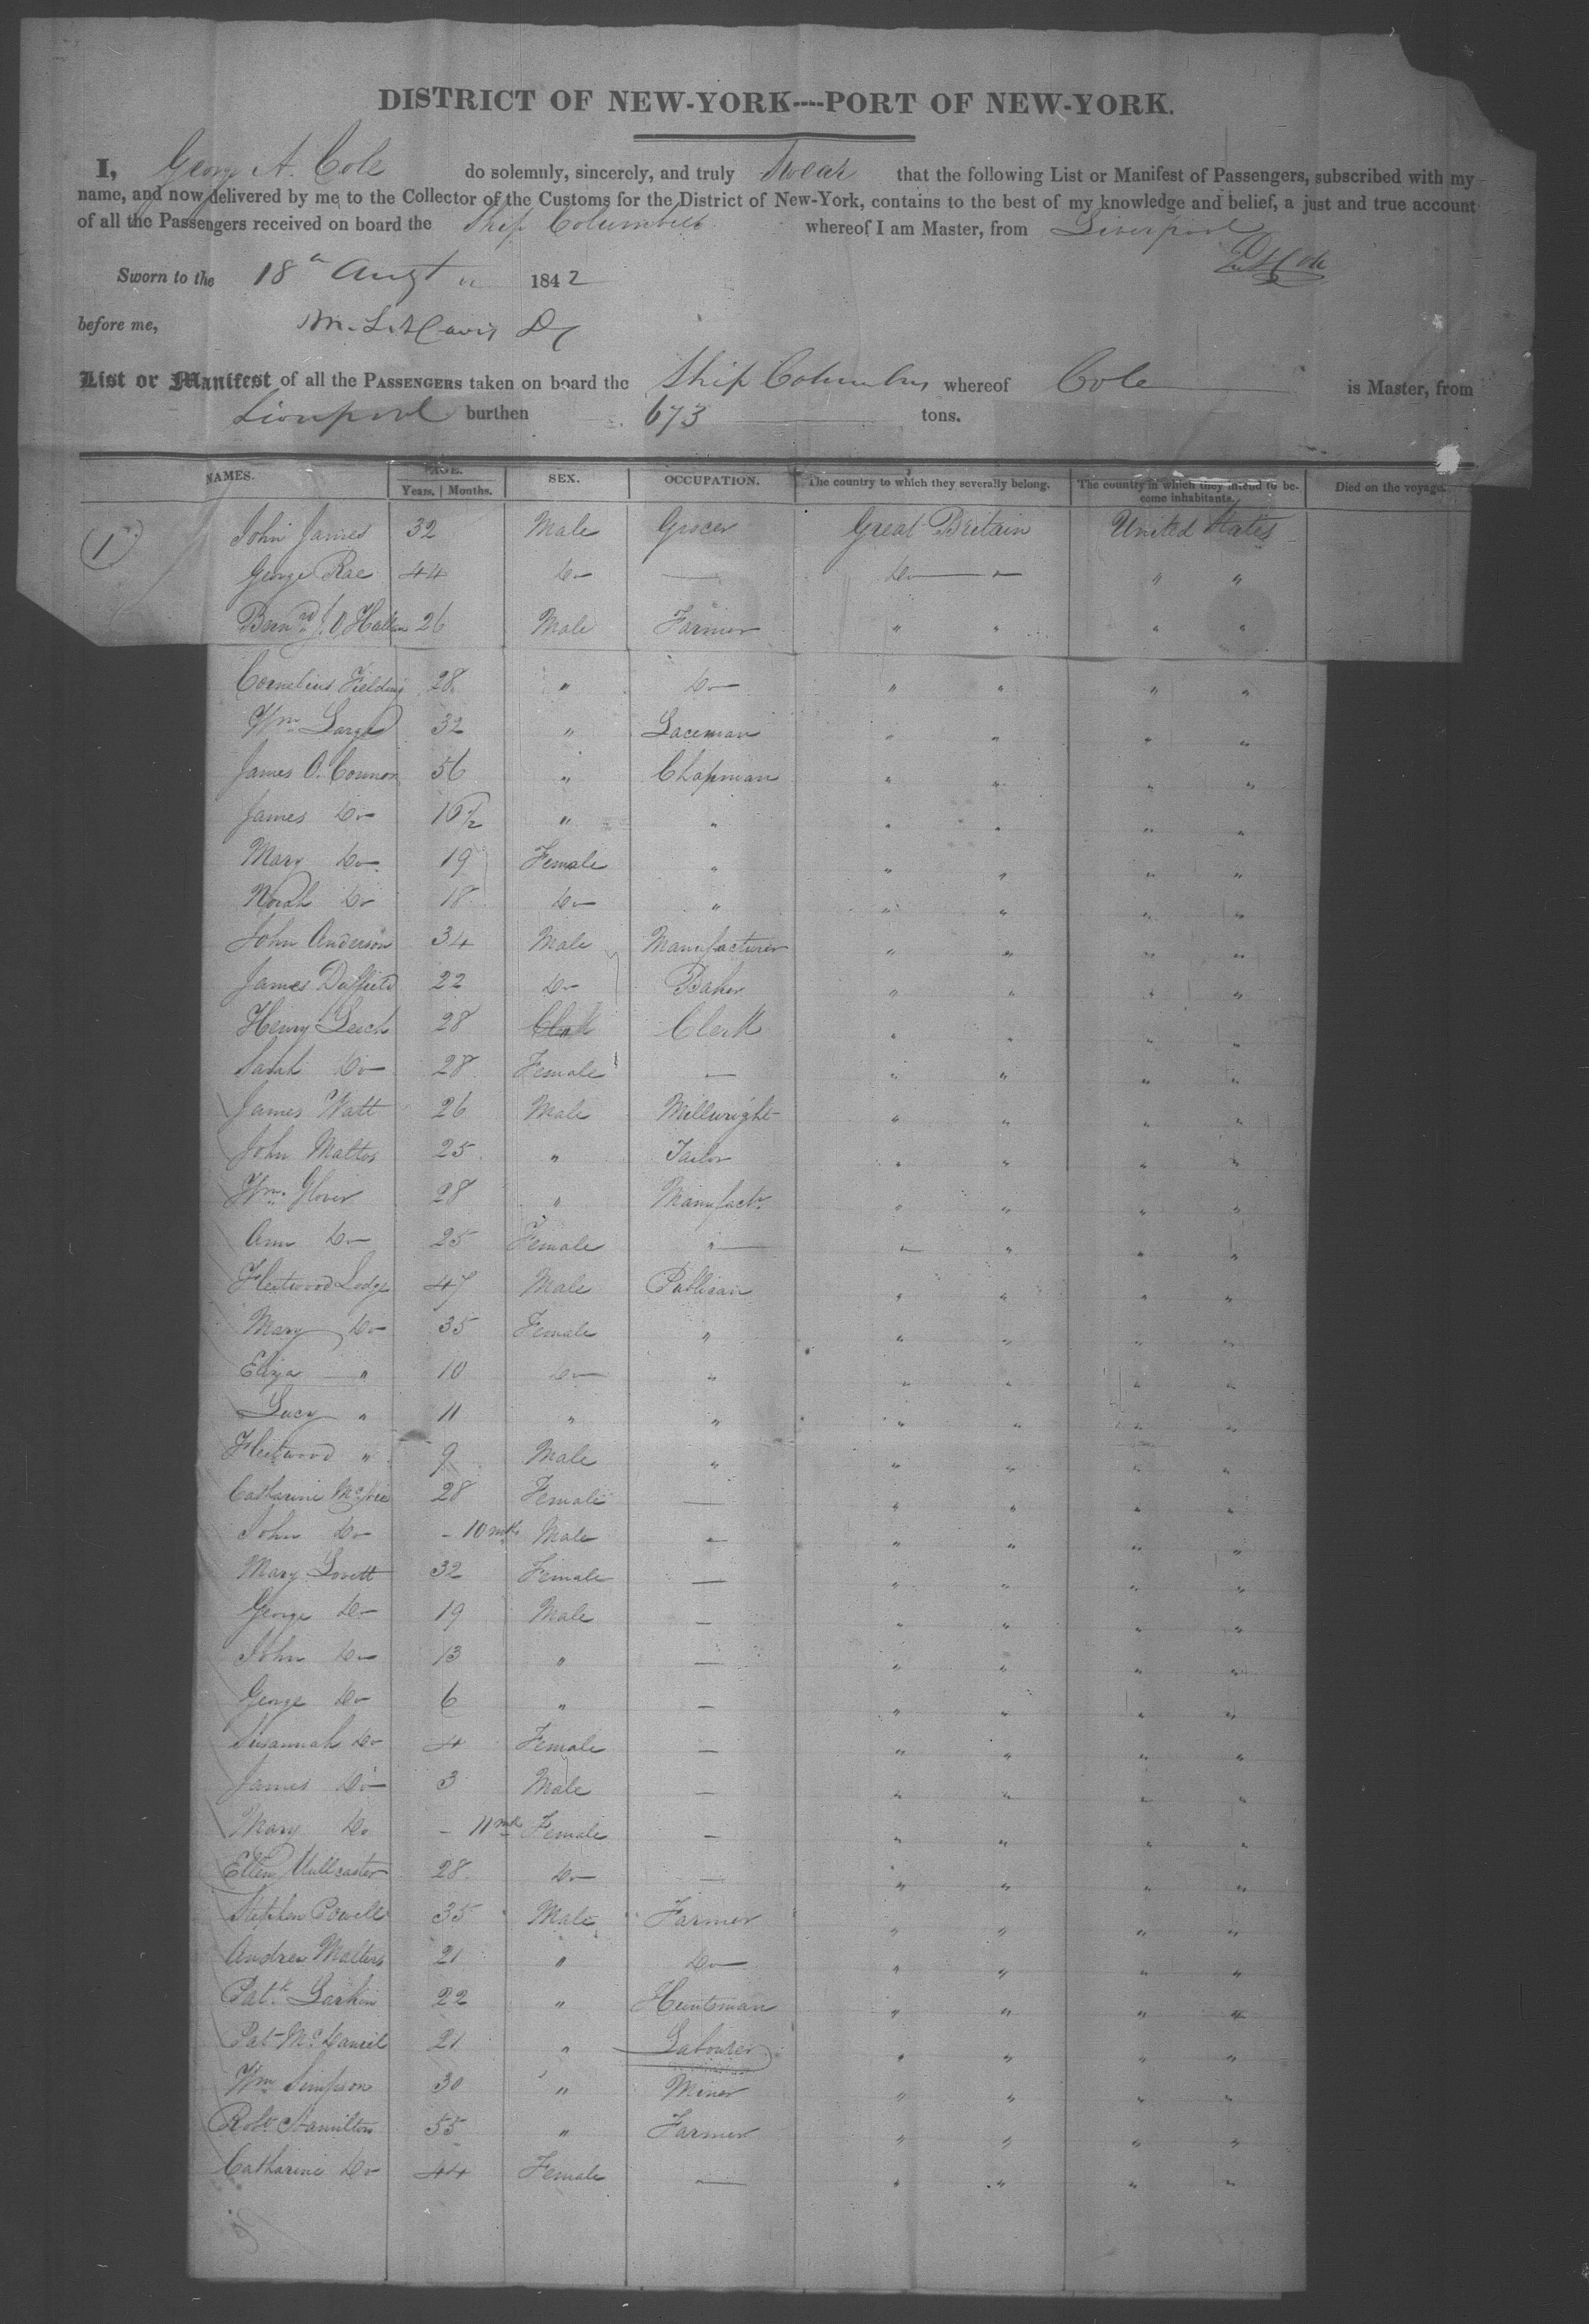 DISTRICT OF NEW-YORK----PORT OF NEW-YORK.
I, George A. Cole do solemnly, sincerely, and truly Swear that the following List or Manifest of Passengers, subscribed with my
name, and now delivered by me to the Collector of the Customs for the District of New-York, contains to the best of my knowledge and belief, a just and true account
of all the Passengers received on board the Ship Columbus whereof I am Master, from Liverpool
Cole
Sworn to the 18th Augt " 1842
before me, M. L. Davis
List or Manifest of all the PASSENGERS taken on board the Ship Columbus whereof Cole is Master, from
Liverpool burthen 673 tons.
NAMES. AGE. SEX. OCCUPATION. The country to which they severally belong. The country in which they intend to be- Died on the voyage.
Years. | Months. come inhabitants.
1 John James 32 Male Grocer Great Britain United States
George Rae 44 Do — Do " "
J. O Hallan 26 Male Farmer " " " "
Cornelius Fielding 28 " Do " " " "
Wm Large 32 " Laceman " " " "
James O. Connor 56 " Chapman " " " "
James Do 16½ " " " " " "
Mary Do 19 Female " " " " "
Norah Do 18 Do " " " " "
John Anderson 34 Male Manufacturer " " " "
James Duffield 22 Do Baker " " " "
Henry Leech 28 Clerk " " " "
Sarah Do 28 Female — " " " "
James Watt 26 Male Millwright " " " "
John 25 " Tailor " " " "
Wm. Glover 28 " Manufactr. " " " "
Ann Do 25 Female " " " " "
Fleetwood Lodge 47 Male Publican " " " "
Mary Do 35 Female " " " " "
Eliza " 10 Do " " " " "
Lucy " 11 " " " " " "
Fleetwood " 9 Male " " " " "
Catharine 28 Female — " " " "
John Do - 10 mths Male — " " " "
Mary Lovett 32 Female — " " " "
George Do 19 Male — " " " "
John Do 13 " — " " " "
George Do 6 " — " " " "
Susannah Do 4 Female — " " " "
James Do 3 Male — " " " "
Mary Do - 11 mths Female — " " " "
Ellen Mullcaster 28 Do — " " " "
Stephen Powell 35 Male Farmer " " " "
Andrew Malters 21 " Do " " " "
Patk. Larkin 22 " Huntsman " " " "
Pat McDaniel 21 " Labourer " " " "
Wm Simpson 30 " Miner " " " "
Robt Hamilton 55 " Farmer " " " "
Catharine Do 44 Female — " " " "